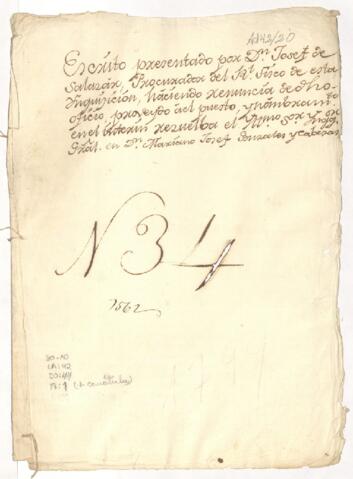 A142/20
Escrito presentado por Dn. Josef de
Salazar, Procurador del Rl. Fisco de esta
Inquisicion, haciendo renuncia de dho
oficio, proveydo del puesto, y nombramto.
en el interim resuelba el Illmo. sor. Ynqor.
Gral. en Dn. Mariano Josef Gonzales y Cabezas
N 34
1562
SO-NO
CA: 142
DO:
FS: 9 (+ caratula)